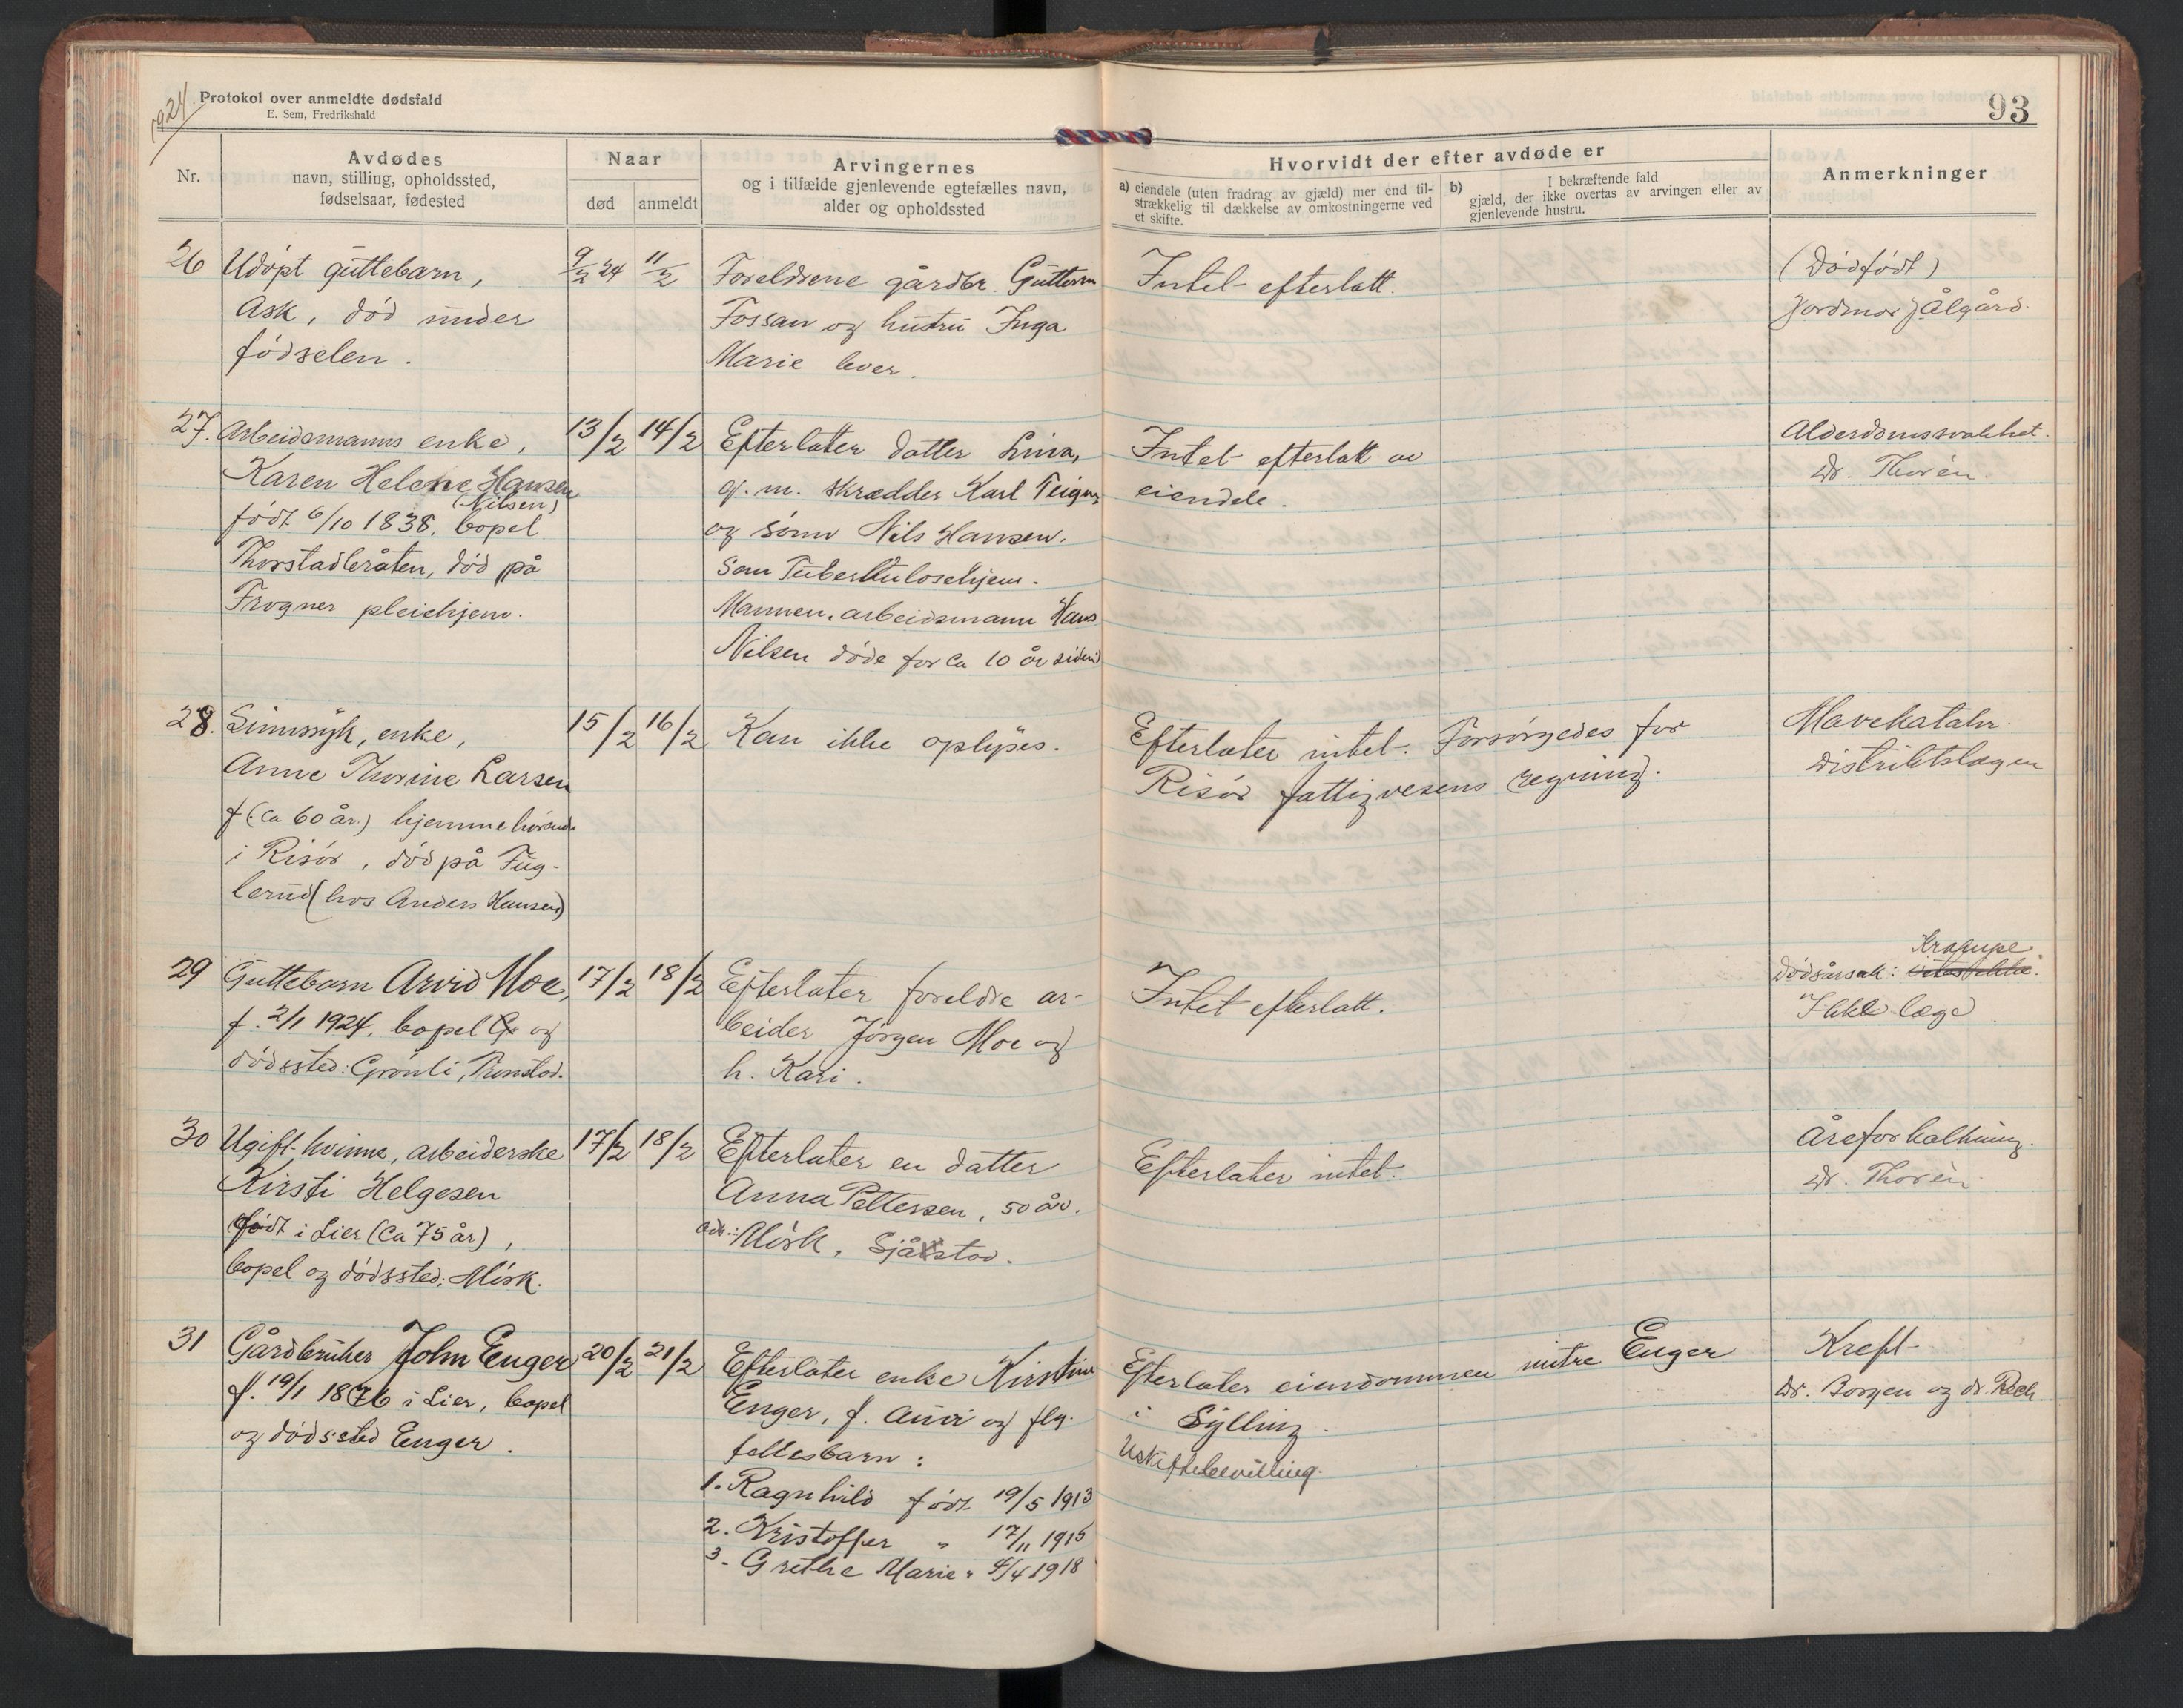 1924
Protokol over anmeldte dødsfald
E. Sem, Fredrikshald
93
Nr.
Avdødes
navn, stilling, opholdssted,
fødselsaar, fødested
Naar
død
anmeldt
Arvingernes
og i tilfælde gjenlevende egtefælles navn,
alder og opholdssted
Hvorvidt der efter avdøde er
a) eiendele (uten fradrag av gjæld) mer end til-
strækkelig til dækkelse av omkostningerne ved
et skifte.
b) I bekræftende fald
gjæld, der ikke overtas av arvingen eller av
gjenlevende hustru.
Anmerkninger
26
Udøpt guttebarn,
Ask, død under
fødselen.
9/2 24
11/2
Foreldrene gårdbr. Guttorm
Fossan og hustru Inga
Marie lever.
Intet efterlatt.
(Dødfødt)
Jordmor Ålgård.
27.
Arbeidsmanns enke,
Karen Helene Hansen
(Nilsen)
født 6/10 1838, bopel
Thorstadbråten, død på
Frogner pleiehjem.
13/2
14/2
Efterlater datter Lina,
g. m. skrædder Karl Teigen
og sønn Nils Hansen.
Søn Tuberkulosehjem.
Mannen, arbeidsmann Hans
Nilsen døde for ca 10 år siden
Intet efterlatt av
eiendele.
Alderdomssvakhet.
Dr. Thorèn.
28.
Sinnssyk, enke,
Anne Thorine Larsen
f (ca 60 år.) hjemmehørende
i Risør, død på Fug-
lerud (hos Anders Hansen)
15/2
16/2
Kan ikke oplyses.
Efterlater intet. Forsørgedes for
Risør fattigvesens regning.
Mavekatahr.
Distriktslægen
29
Guttebarn Arvid Moe,
f. 2/1 1924, bopel og
dødssted: Grønli, Tronstad.
17/2
18/2
Efterlater foreldre ar-
beider Jørgen Moe og
h. Kari.
Intet efterlatt.
Krampe
Dødsårsak:
Ikke læge
30
Ugift kvinne, arbeiderske
Kirsti Helgesen
født i Lier (ca 75 år),
bopel og dødssted: Mörk.
17/2
18/2
Efterlater en datter
Anna Pettersen, 50 år.
adr.: Mörk, Sjåstad.
Efterlater intet.
Åreforkalkning.
Dr. Thorèn.
31
Gårdbruker John Enger
f. 19/1 1876 i Lier, bopel
og dødssted Enger.
20/2
21/2
Efterlater enke Kirstine
Enger, f. Auvi og flg.
fellesbarn:
1. Ragnhild født 19/5 1913
2. Kristoffer " 17/11 1915
3. Grethe Marie " 4/4 1918
Efterlater eiendommen nitre Enger
i Sylling.
Uskiftebevilling.
Kreft
Dr. Borgen og dr. Rech.